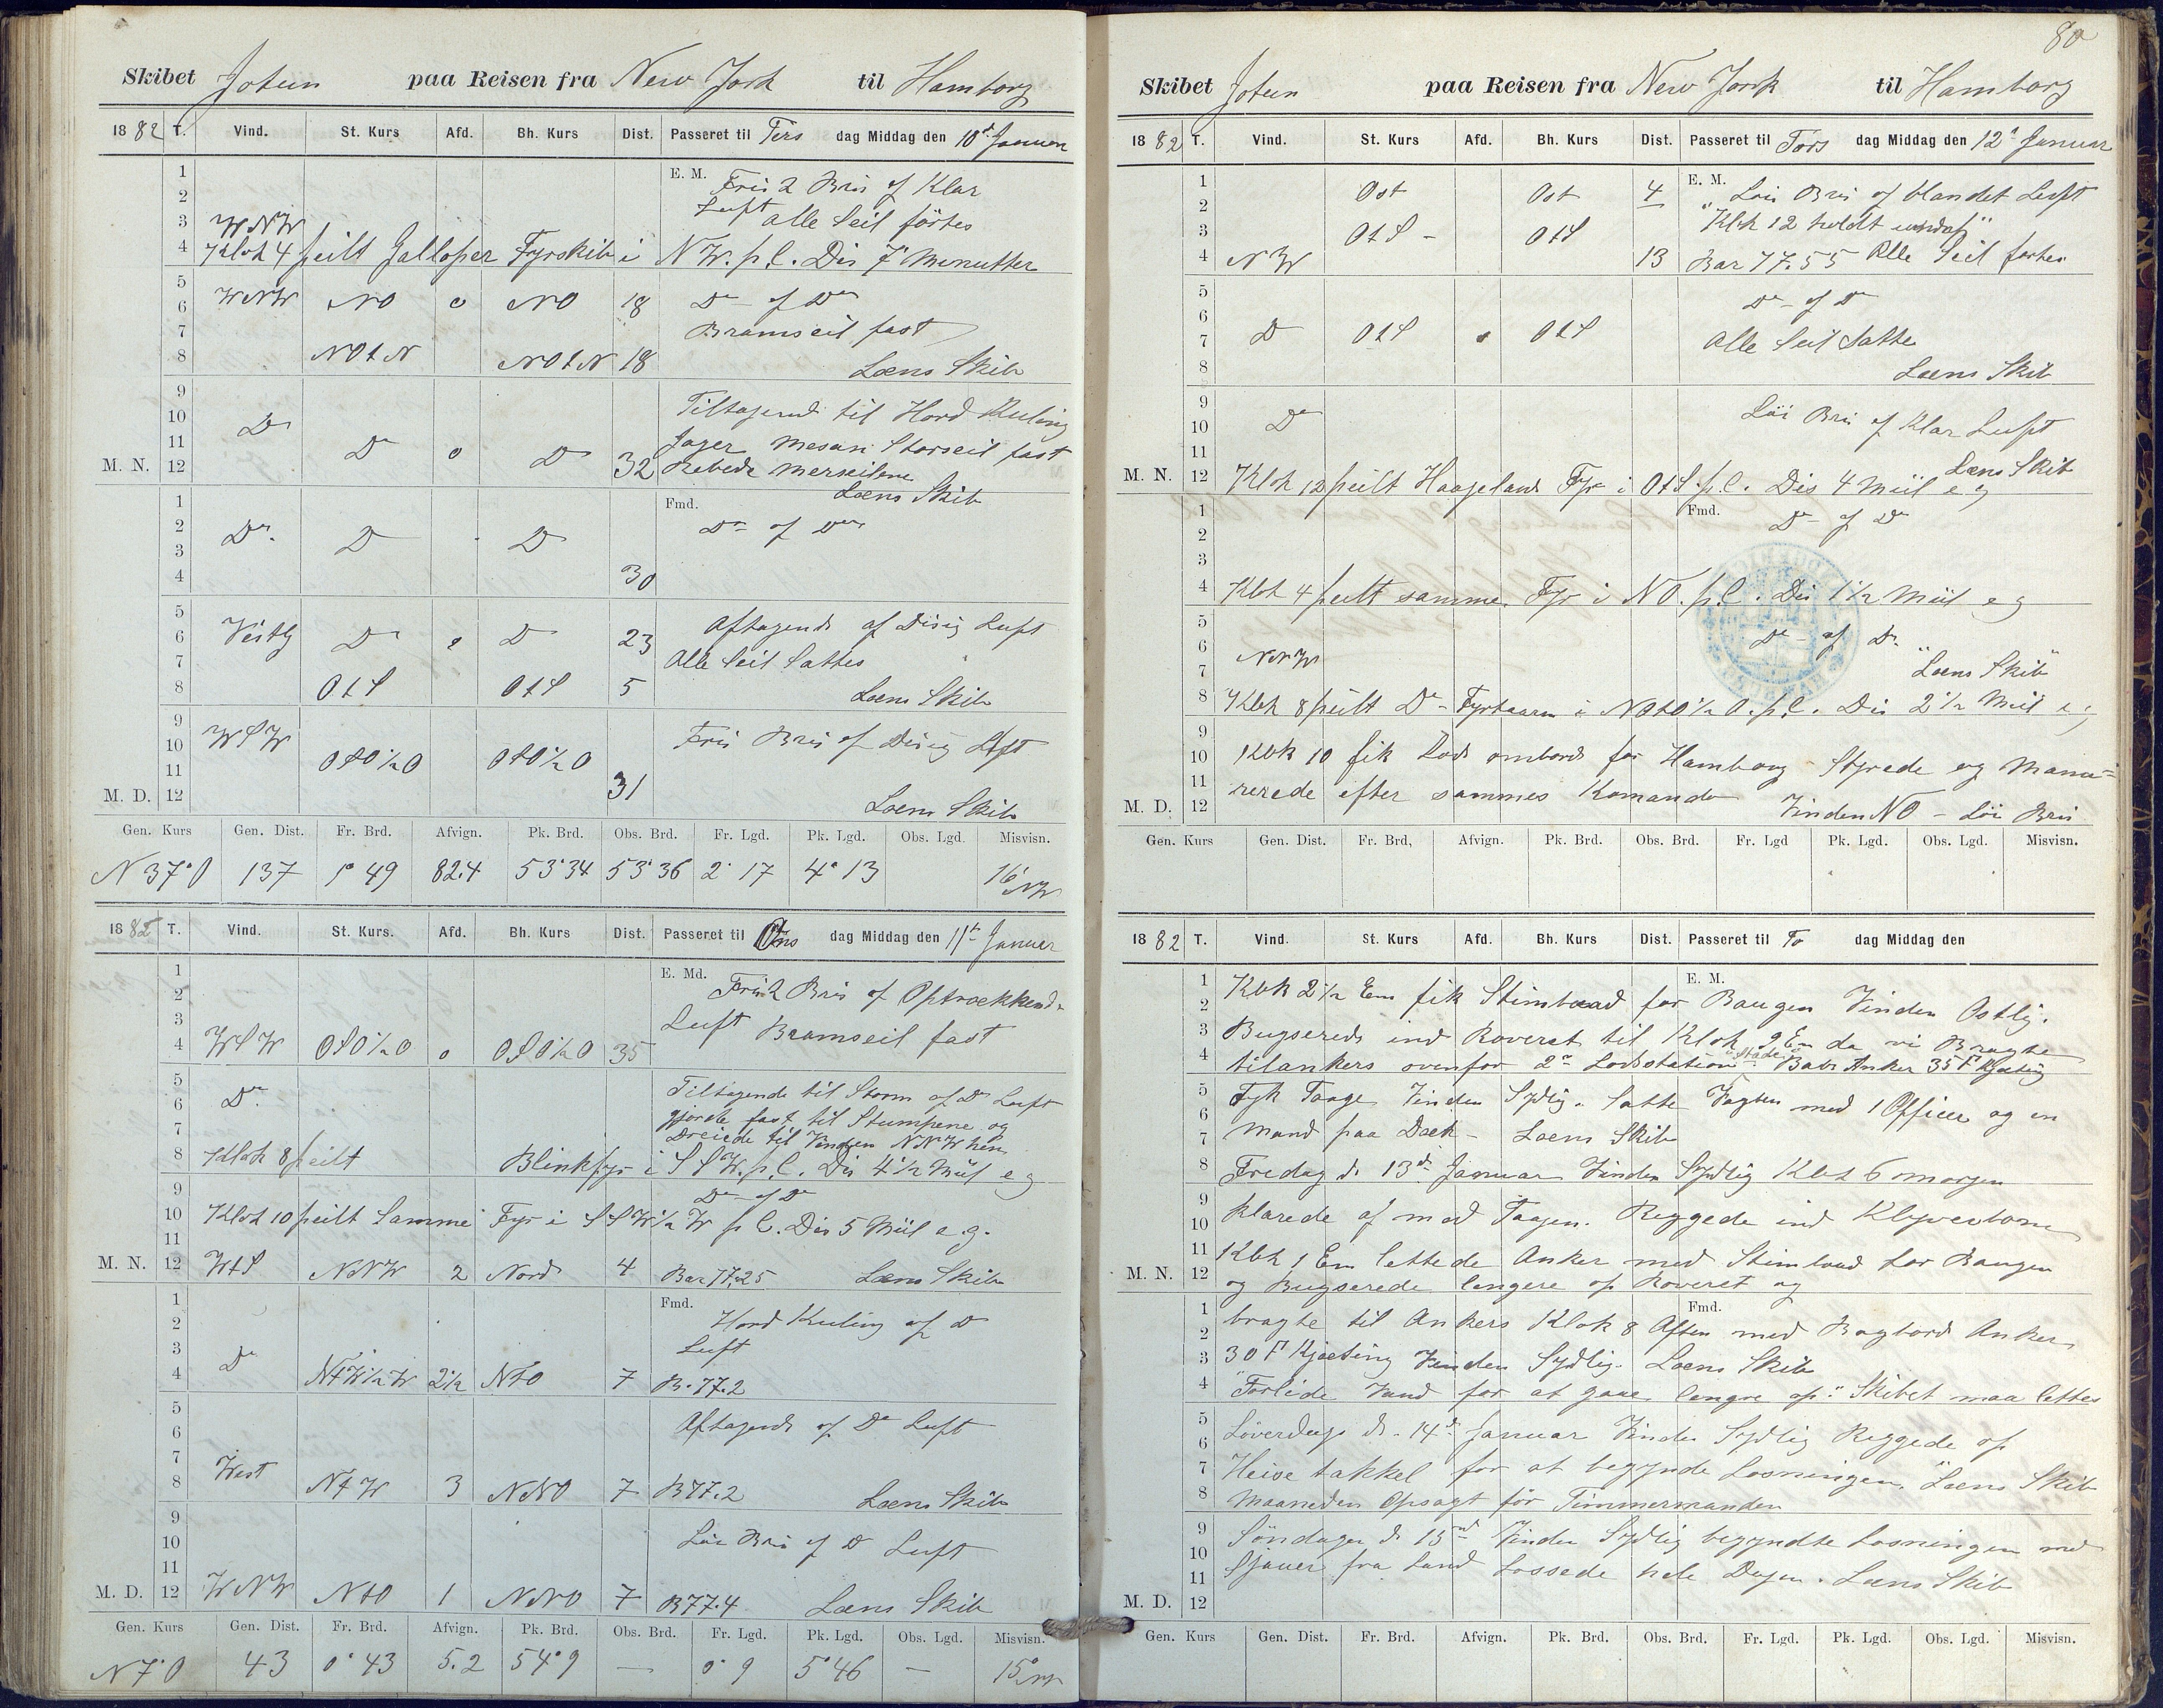 Skibet Jotun paa Reisen fra New York til Hamborg
1882 T. Vind. St. Kurs Afd. Bh. Kurs Dist. Passeret til Tirs dag Middag den 10d Januar
1 E. M. Frisk Bris og Klar
2 Luft alle Seil förtes
3 WNW
4 Klok 4 peilt Galloper Fyrskib i NW. p. C. Dis 7 Menutter
5
6 WNW NO o NO 18 Do og Do
7 Bramseil fast
8 NOtN NOtN 18 Læns Skib
9 Tiltagend til Hord Kuling
10 Do
11 Do o Do Jager Mesan Storseil fast
M. N. 12 32 Rebede Merseilene
Læns Skib
1 Fmd.
2 Do Do Do Do og Do
3
4 30
5
6 Vestlg Do o Do 23 Aftagende af Disig Luft
7 Alle Seil Sattes
8 OtS OtS 5 Læns Skib
9
10 WSW Fris Bris og Disig Luft
11 OSO½O OSO½O
M. D. 12 31 Læns Skib
Gen. Kurs Gen. Dist. Fr. Brd. Afvign. Pk. Brd. Obs. Brd. Fr. Lgd. Pk. Lgd. Obs. Lgd. Misvisn.
N 37°O 137 1° 49 82.4 53°34 53°36 2° 17 4° 13 16° NW
1882 T. Vind. St. Kurs. Afd. Bh. Kurs Dist. Passeret til Ons dag Middag den 11te Januar
1 E. Md. Frisk Bris og Optrækkend
2
3 Luft Bramseil fast
4 WSW OSO½O o OSO½O 35
5 Tiltagende til Storm af Do Luft
6 Do gjorde fast til Stumpene og
7 Dreiede til Vinden NNW hen
8 Klok 8 peilt Blinkfyr i SSW. p. C. Dis 4½ Miil e g
9 Do og Do
10 Klok 10 peilt Samme Fyr i SSW½W p C. Dis 5 Miil e. g.
11
M. N. 12 WtS NNW 2 Nord 4 Bar 77,25 Læns Skib
1 Fmd.
2 Hord Kuling og Do
3 Luft
4 Do NtW½W 2½ NtO 7 B. 77.2
5
6 Aftagende og Do Luft
7
8 West NtW 3 NNO 7 B 77.2 Læns Skib
9
10 Löi Bris og Do Luft
11
M. D. 12 WNW NtO 1 NNO 7 B 77.4 Læns Skib
Gen. Kurs Gen. Dist. Fr. Brd. Afvign. Pk. Brd. Obs. Brd. Fr. Lgd. Pk. Lgd. Obs. Lgd. Misvisn.
N 7°O 43 0° 43 5.2 54°9 — 0° 9 5°46 — 15° NW
80
Skibet Jotun paa Reisen fra New York til Hamborg
1882 T. Vind. St. Kurs Afd. Bh. Kurs Dist. Passeret til Tors dag Middag den 12te Januar
1 Ost Ost 4 E. M. Löi Bris og blandet Luft
2 "Klok 12 holdt undaf"
3 OtS - OtS
4 NW 13 Bar 77.55 Alle Seil förtes
5 Do og Do
6
7 Do OtS o OtS Alle Seil Satte
8 Læns Skib
9
10 Do Löi Bris og Klar Luft
11 Læns Skib
M. N. 12 Klok 12 peilt Fyr i OtS. p. C. Dis 4 Miil e g
1 Fmd.
2 Do og Do
3
4 Klok 4 peilt samme Fyr i NO. p. C. Dis 1½ Miil e g
5
6 NNW Do og Do.
7 "Læns Skib"
8 Klok 8 peilt Do Fyrtaarn i NOtO½O. p. C. Dis 2½ Miil e g
9
10 Klok 10 fik Lods ombord for Hamborg Styrede og Manu=
11 rerede efter sammes Komando
M. D. 12 Vinden NO - Löi Bris
Gen. Kurs Gen. Dist. Fr. Brd, Afvign. Pk. Brd. Obs. Brd. Fr. Lgd Pk. Lgd. Obs. Lgd. Misvisn.
1882 T. Vind. St. Kurs Afd. Bh. Kurs Dist. Passeret til To dag Middag den
E. M.
1 Klok 2½ Em fik Stimbaad for Baugen Vinden Ostlig.
2
3 Bugserede ind Roveret til Klok 9 Em da vi Bragte
4 tilankers ovenfor 2n Lodsstation "Stade" Babs Anker 35 F Kjæting
5 Tyk Taage Vinden Sydlig. Satte Vagten med 1 Officer og en
6
7 Mand paa Dæk - Læns Skib
8 Fredag d. 13d Januar Vinden Sydlig Klok 6 morgen
9
10 Klarede af med Taagen. Reggede ind Klyverbom
11 Klok 1 Em lettede Anker med Stimbaad for Baugen
M. N. 12 og Bugserede lengere op Roveret og
Fmd.
1 bragte til Ankers Klok 8 Aften med Bagbord Anker
2
3 30 F Kjæting Vinden Sydlig. Læns Skib
4 "Forlide Vand for at gaae længre op." Skibet maa lettes
5 Löverdags d. 14d Januar Vinden Sydlig Reggede op
6
7 Heise takkel for at begynde Losningen. "Læns Skib
8 Maaneden Opsagt for Timmermanden
9 Söndagen d. 15nd Vinden Sydlig begyndte Losningen med
10
11 Sjauer fra Land Lossede hele Dagen. Læns Skib
M. D. 12
Gen. Kurs Gen. Dist. Fr. Brd. Afvign. Pk. Brd. Obs. Brd. Fr. Lgd. Pk. Lgd. Obs. Lgd. Misvisn.